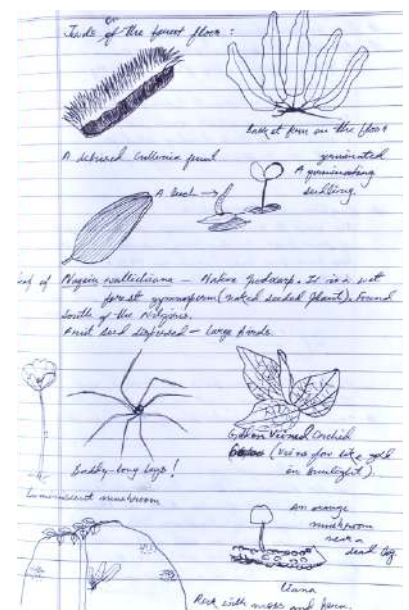 of the forest floor :
Basket fern on the floor
A debrised Cullenia fruit
germinated
A germinating
seedling.
A leech →
leaf of Nageia wallichiana – Native Podocarp. It is a wet
forest gymnosperm (naked seeded plant). Found
South of the Nilgiris.
Fruit seed dispersed – Large birds.
Daddy-long legs!
Golden Veined Orchid
(Veins glow like gold
in sunlight).
Luminescent mushroom
An orange
mushroom
near a
dead log
Liana
Rock with moss and ferns.